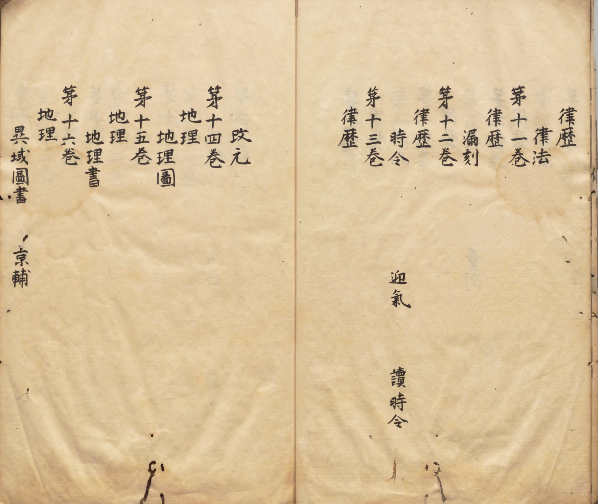 律歷
律法
苐十一卷
律歷
漏刻
苐十二卷
律歷
時令 迎氣 讀時令
苐十三卷
律歷
改元
苐十四卷
地理
地理圖
苐十五卷
地理
地理書
苐十六卷
地理
異域圖書 京輔